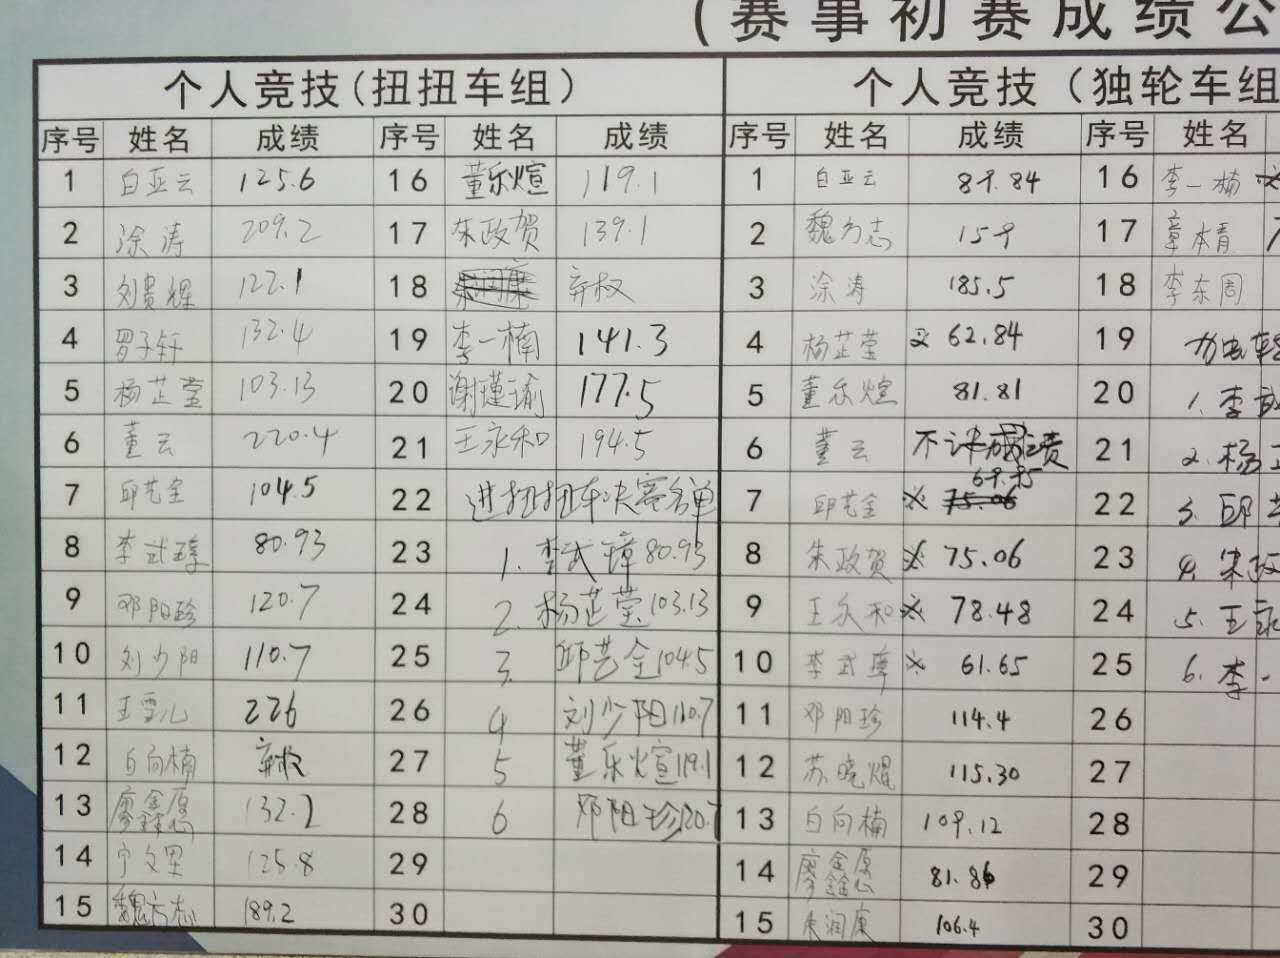 (赛事初赛成绩公
个人竞技(扭扭车组)
序号 姓名 成绩 序号 姓名 成绩
1 白亚云 125.6 16 董乐煊 119.1
2 涂涛 209.2 17 朱政贺 139.1
3 刘贵辉 122.1 18 朱润康 弃权
4 罗子轩 132.4 19 李一楠 141.3
5 杨芷莹 103.13 20 谢瑾瑜 177.5
6 董云 220.4 21 王永和 194.5
7 邱艺全 104.5 22 进扭扭车决赛名单
8 李武璋 80.93 23 1. 李武璋 80.93
9 邓阳珍 120.7 24 2. 杨芷莹 103.13
10 刘少阳 110.7 25 3. 邱艺全 104.5
11 王雪儿 226 26 4 刘少阳 110.7
12 白向楠 弃权 27 5 董乐煊 119.1
13 廖鑫愿 132.2 28 6 邓阳珍 120.7
14 宁文里 125.8 29
15 魏方志 189.2 30
个人竞技(独轮车组
序号 姓名 成绩 序号 姓名
1 白亚云 89.84 16 李一楠
2 魏方志 159 17 章本精
3 涂涛 185.5 18 李东周
4 杨芷莹 62.84 19
5 董乐煊 81.81 20 1. 李武
6 董云 不计成绩 21 2. 杨
7 邱艺全 ※ 75.06 69.95 22 3. 邱艺
8 朱政贺 ※ 75.06 23 4. 朱政
9 王永和 ※ 78.48 24 5. 王永
10 李武璋 ※ 61.65 25 6. 李一
11 邓阳珍 114.4 26
12 苏晓焜 115.30 27
13 白向楠 109.12 28
14 廖鑫愿 81.86 29
15 朱润康 106.4 30